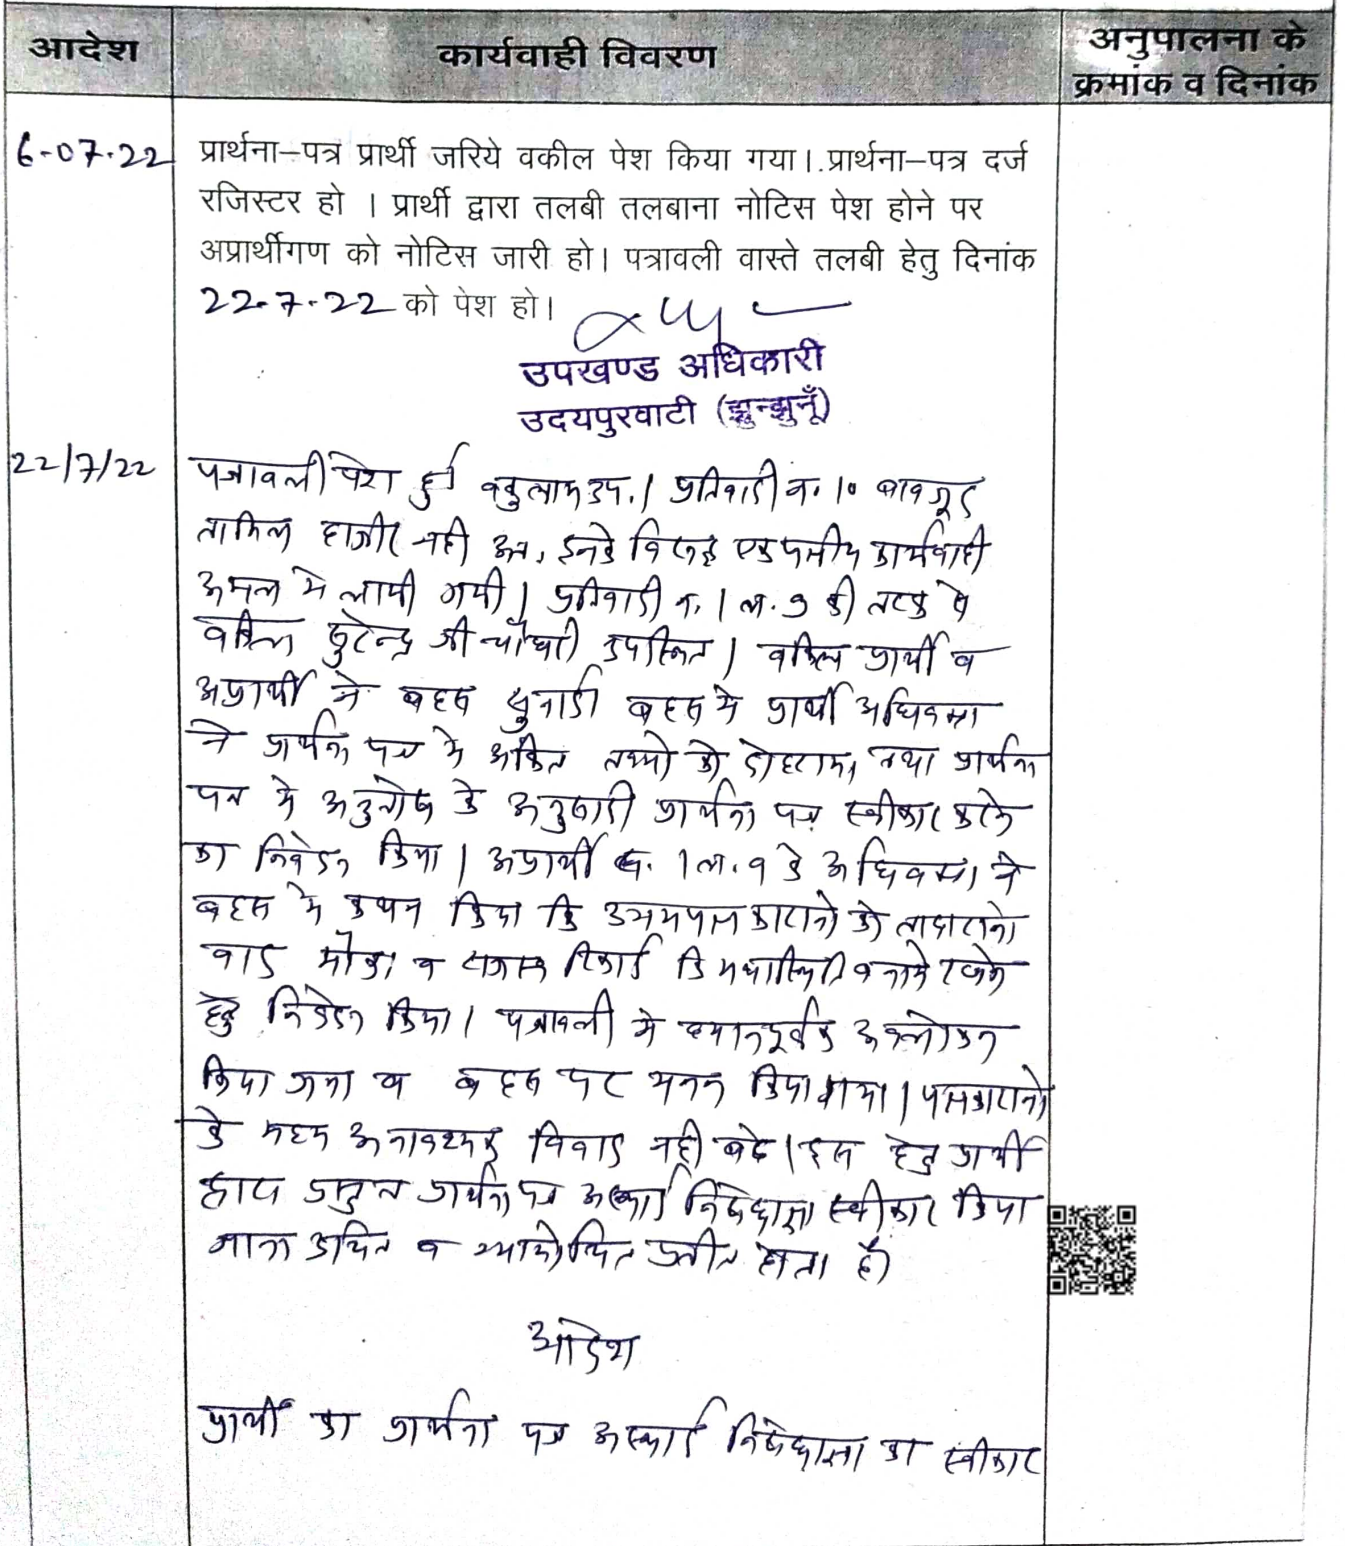 आदेश
कार्यवाही विवरण
अनुपालना के
क्रमांक व दिनांक
6-07-22
प्रार्थना-पत्र प्रार्थी जरिये वकील पेश किया गया। प्रार्थना-पत्र दर्ज
रजिस्टर हो । प्रार्थी द्वारा तलबी तलबाना नोटिस पेश होने पर
अप्रार्थीगण को नोटिस जारी हो। पत्रावली वास्ते तलबी हेतु दिनांक
22-7-22 को पेश हो।
उपखण्ड अधिकारी
उदयपुरवाटी (झुन्झुनूँ)
22/7/22
पत्रावली पेश हुई वकुलाय उप.। प्रतिवादी क. 10 बावजूद
तामिल हाजीर नही अत, इनके विरूद्ध एक पक्षीय कार्यवाही
अमल मे लायी गयी। प्रतिवादी क. 1 ल. 9 की तरफ से
वकिल सुरेन्द्र जी चौधरी उपस्थित। वकिल प्रार्थी व
अप्रार्थी ने बहस सुनाई बहस मे प्रार्थी अधिवक्ता
ने प्रार्थना पत्र मे अंकित तथ्यो को दोहराया, तथा प्रार्थना
पत्र मे अनुतोष के अनुसारी प्रार्थना पत्र स्वीकार करने
का निवेदन किया। अप्रार्थी क. 1 ल. 9 के अधिवक्ता ने
बहस मे कथन किया कि उभयपक्षकारानो को तादौराने
वाद मौका व राजस्व रिकार्ड कि यथास्थिति बनाये रखने
हेतु निवेदन किया। पत्रावली मे ध्यानपूर्वक अवलोकन
किया गया व बहस पर मनन किया गया। पक्षकारानो
के मध्य अनावश्यक विवाद नही बढे। इस हेतु प्रार्थी
द्वारा प्रस्तुत प्रार्थना पत्र अस्थाई निषेधाज्ञा स्वीकार किया
जाना उचित व न्यायोचित प्रतीत होता है।
आदेश
प्रार्थी का प्रार्थना पत्र अस्थाई निषेधाज्ञा का स्वीकार